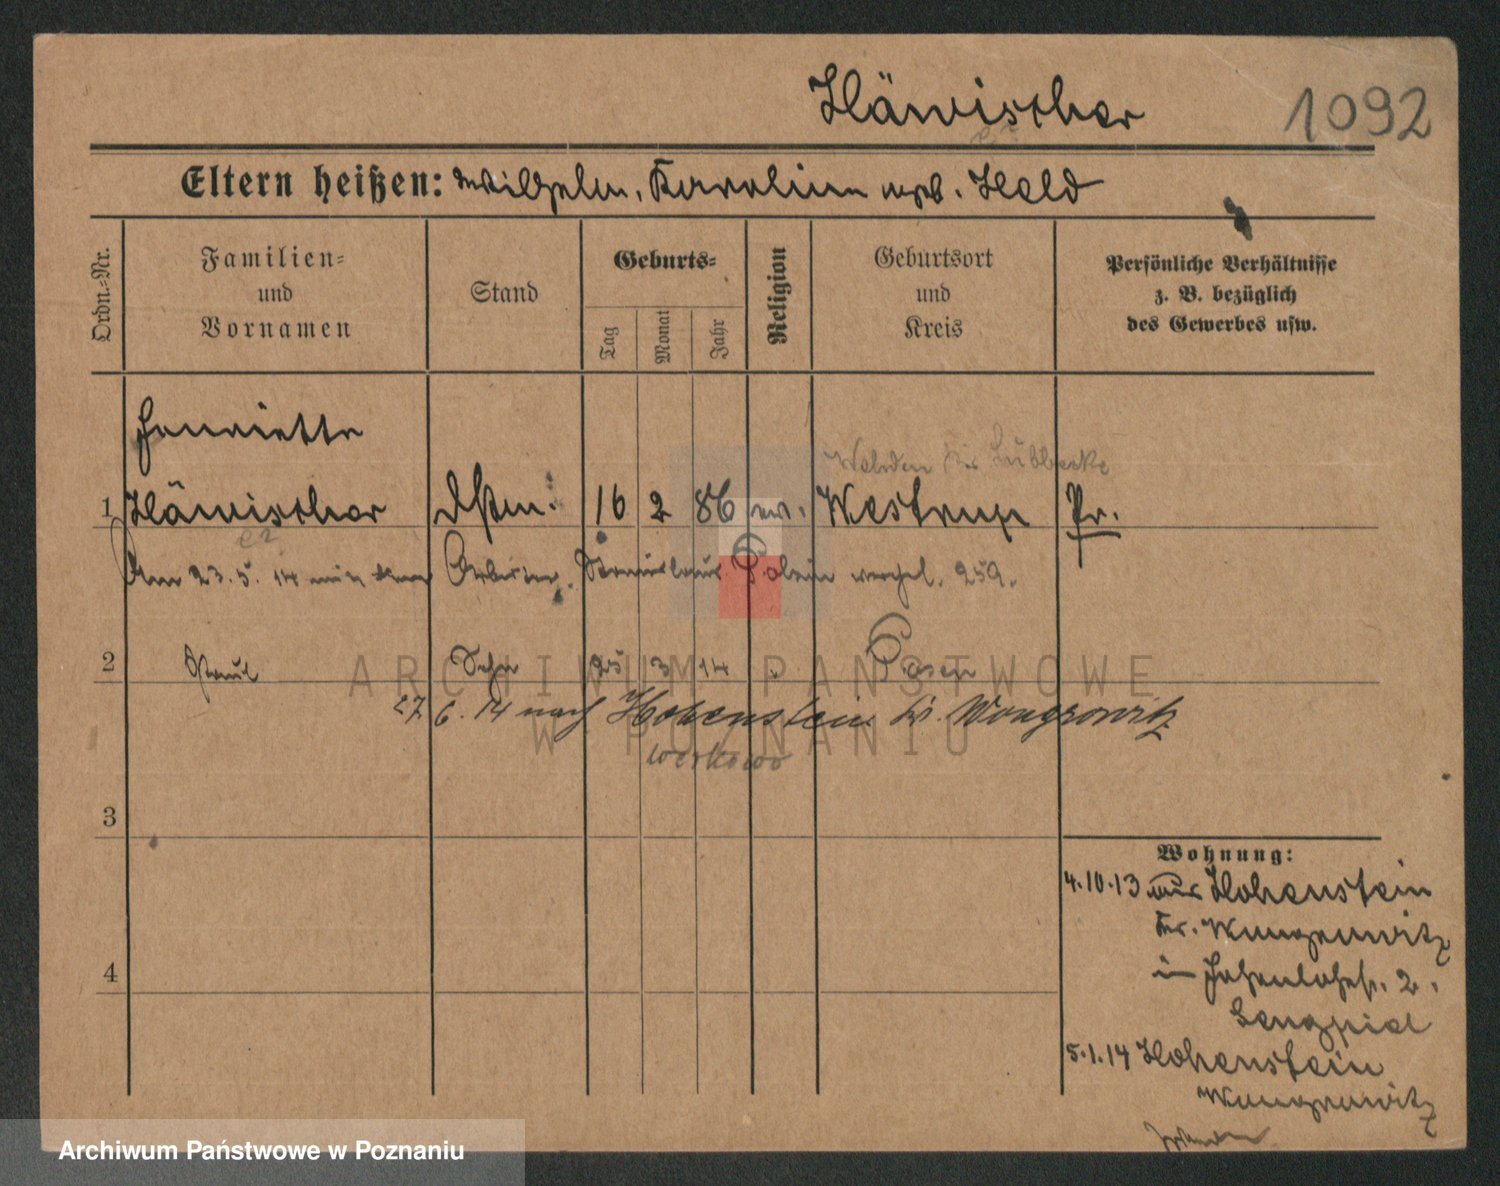 Häwischer 1092
Eltern heißen: Wilhelm, Karoline geb. Held
Ordn.=Nr.
Familien=
und
Vornamen
Stand
Geburts=
Tag
Monat
Jahr
Religion
Geburtsort
und
Kreis
Persönliche Verhältnisse
z. B. bezüglich
des Gewerbes usw.
Henriette
Kr. Lübbecke
1 Häwischer 16 2 86 ev. Westrup Pr.
Am 23. 5. 14 mit dem Arbeiter Stanislaus verehel. 259.
2 Paul Sohn 25 3 14 Posen
27 6. 14 nach Hohenstein Kr. Wongrowitz
3
4
Wohnung:
4.10.13 aus Hohenstein
Kr. Wongrowitz
in Hohenlohestr. 2.
Sengpiel
5.1.14 Hohenstein
Wongrowitz
ARCHIWUM PAŃSTWOWE
W POZNANIU
Archiwum Państwowe w Poznaniu